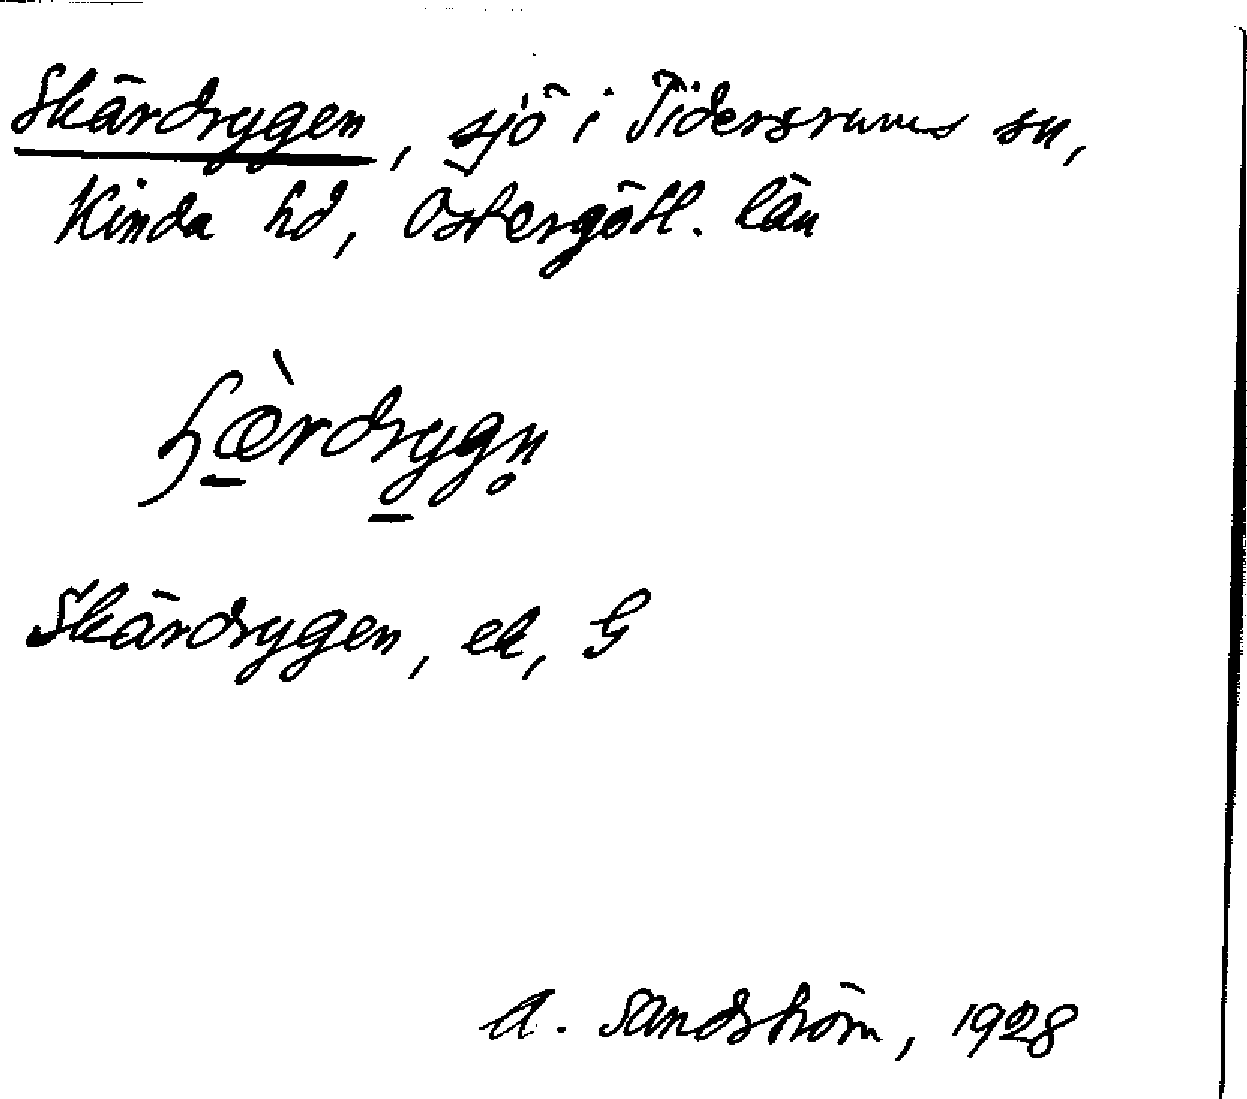 Skärdrygen, sjö i Tidersrums sn,
Kinda hd, Östergötl. län
Skärdrygen, ek, G
A. Sandström, 1928